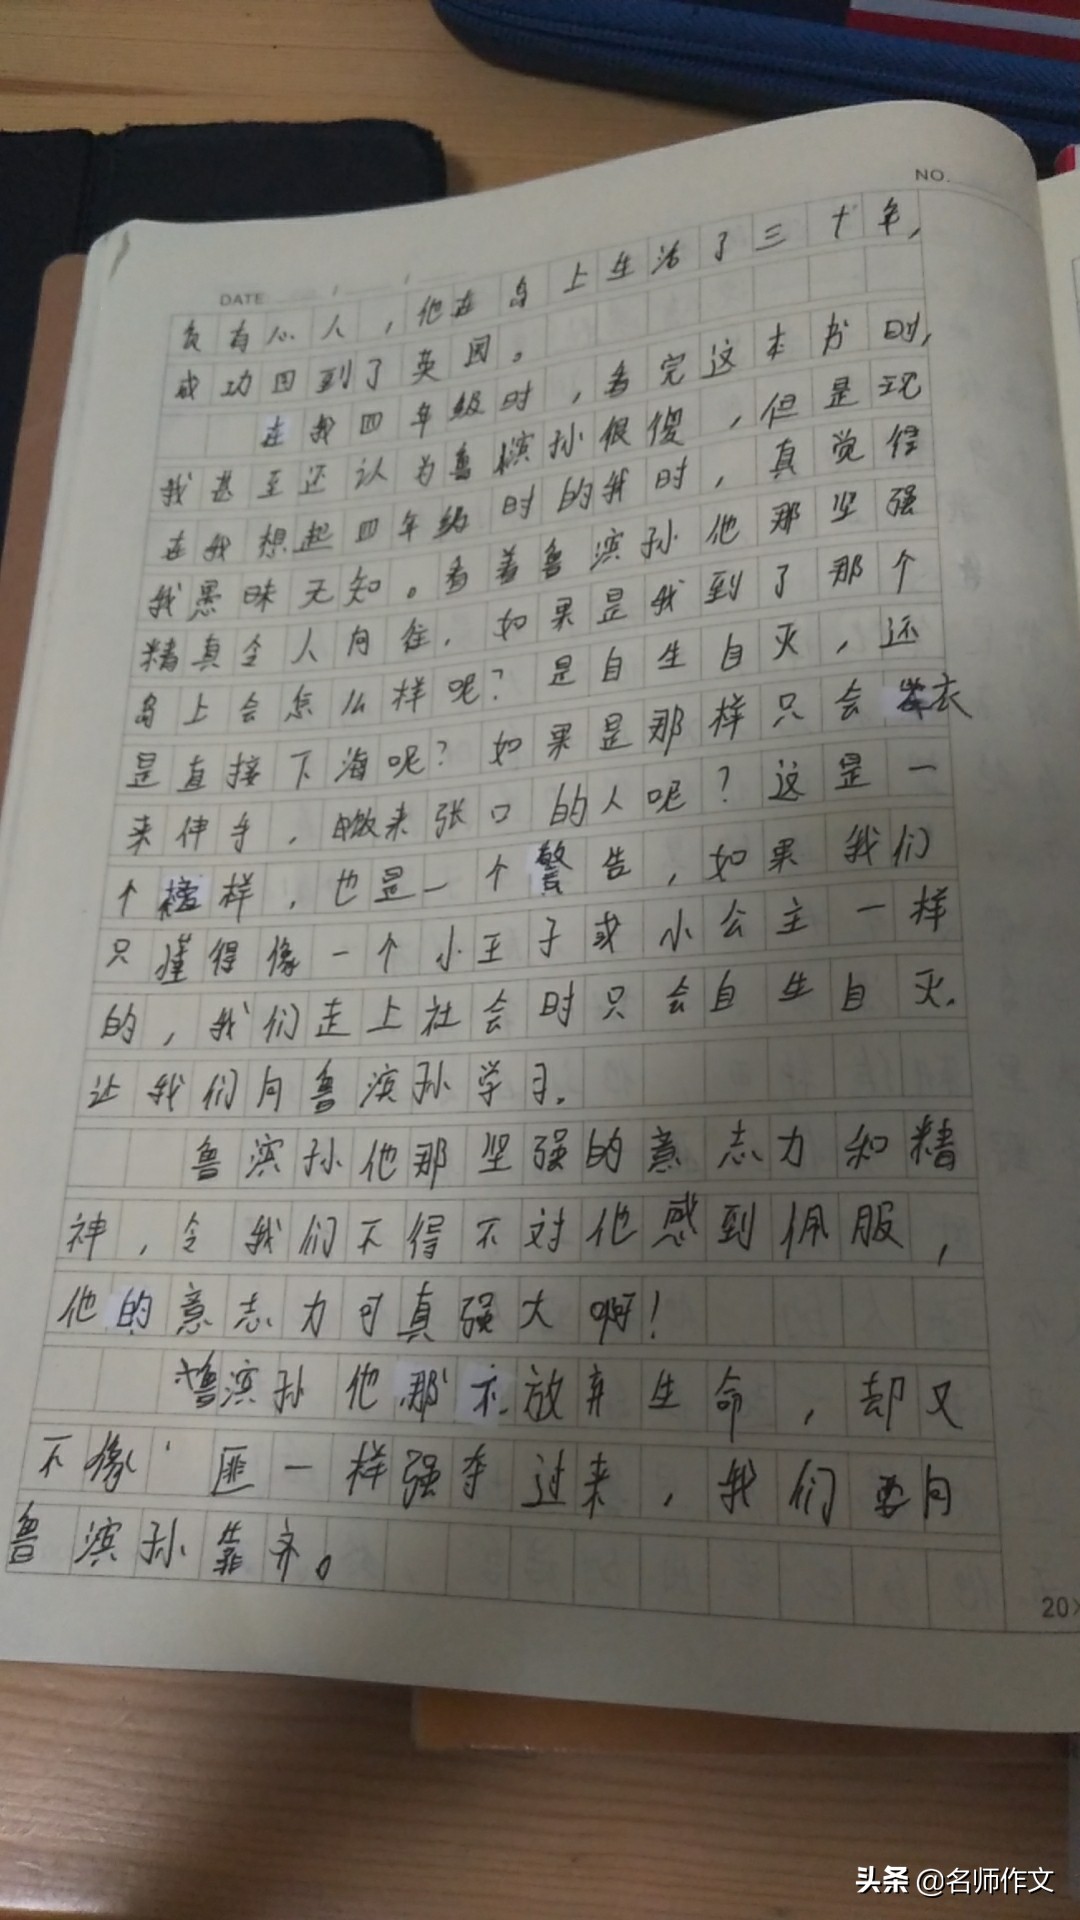 NO.
DATE
负有心人，他在岛上生活了三十年，
成功回到了英国。
在我四年级时，看完这本书时，
我甚至还认为鲁滨孙很傻，但是现
在我想起四年级时的我时，真觉得
我愚昧无知。看着鲁滨孙他那坚强
精真令人向往，如果是我到了那个
岛上会怎么样呢？是自生自灭，还
是直接下海呢？如果是那样只会衣
来伸手，饭来张口的人呢？这是一
个榜样，也是一个警告，如果我们
只懂得像一个小王子或小公主一样
的，我们走上社会时只会自生自灭.
让我们向鲁滨孙学习.
鲁滨孙他那坚强的意志力和精
神，令我们不得不对他感到佩服，
他的意志力可真强大啊！
鲁滨孙他那不放弃生命，却又
不像匪一样强夺过来，我们要向
鲁滨孙靠齐。
20×
头条 @名师作文